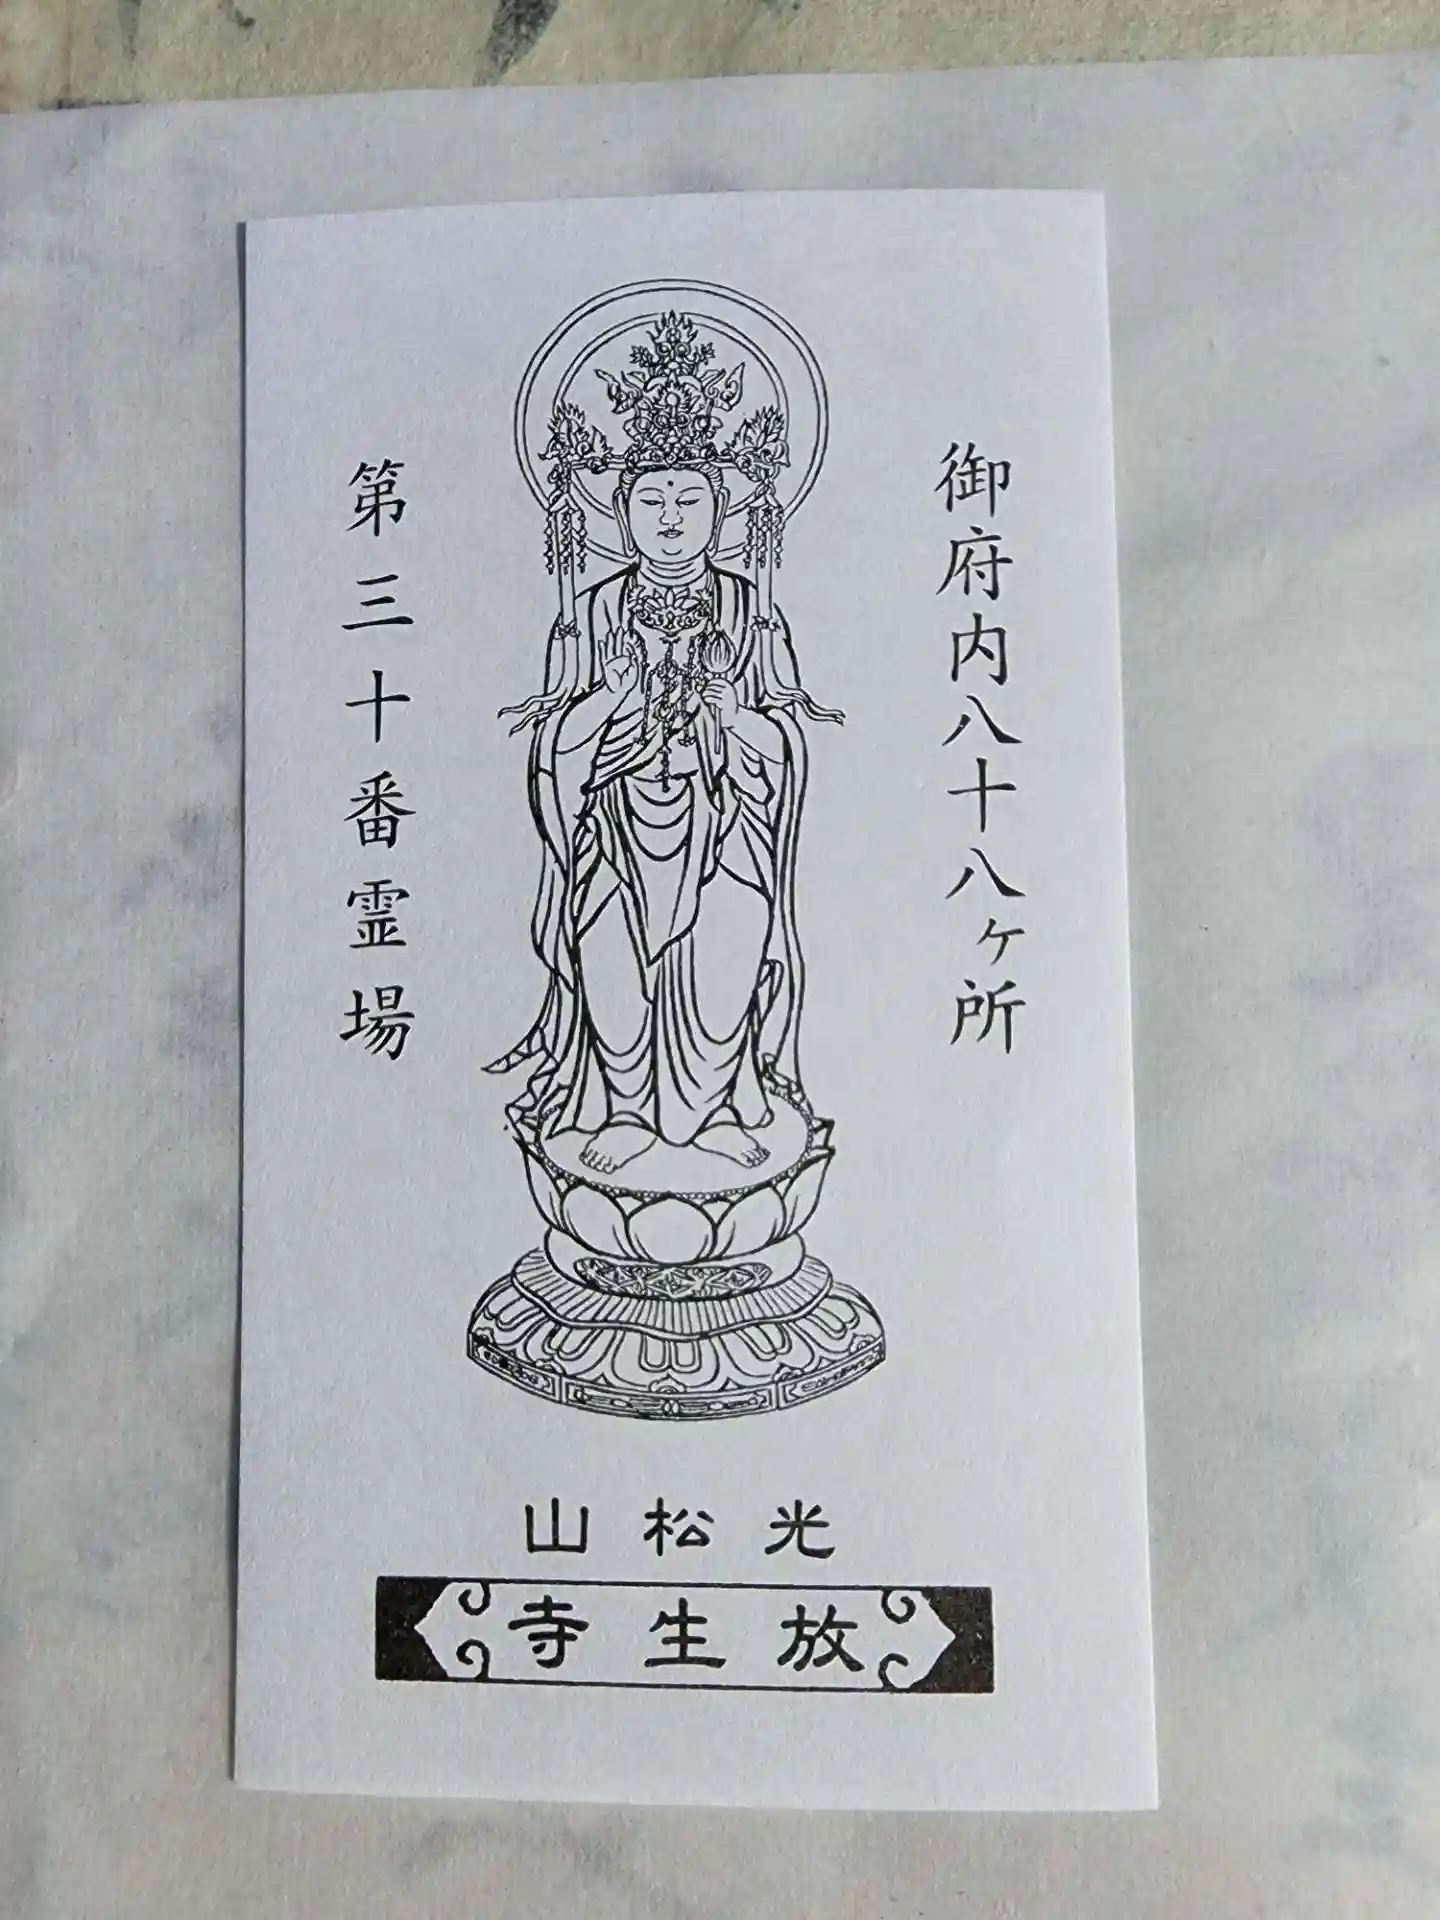 御府内八十八ヶ所
第三十番霊場
光松山
放生寺